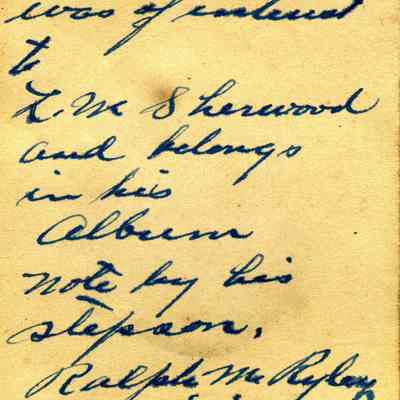 was of interest
to
L. M Sherwood
and belongs
in his
album
note by his
stepson,
Ralph M. Ryley